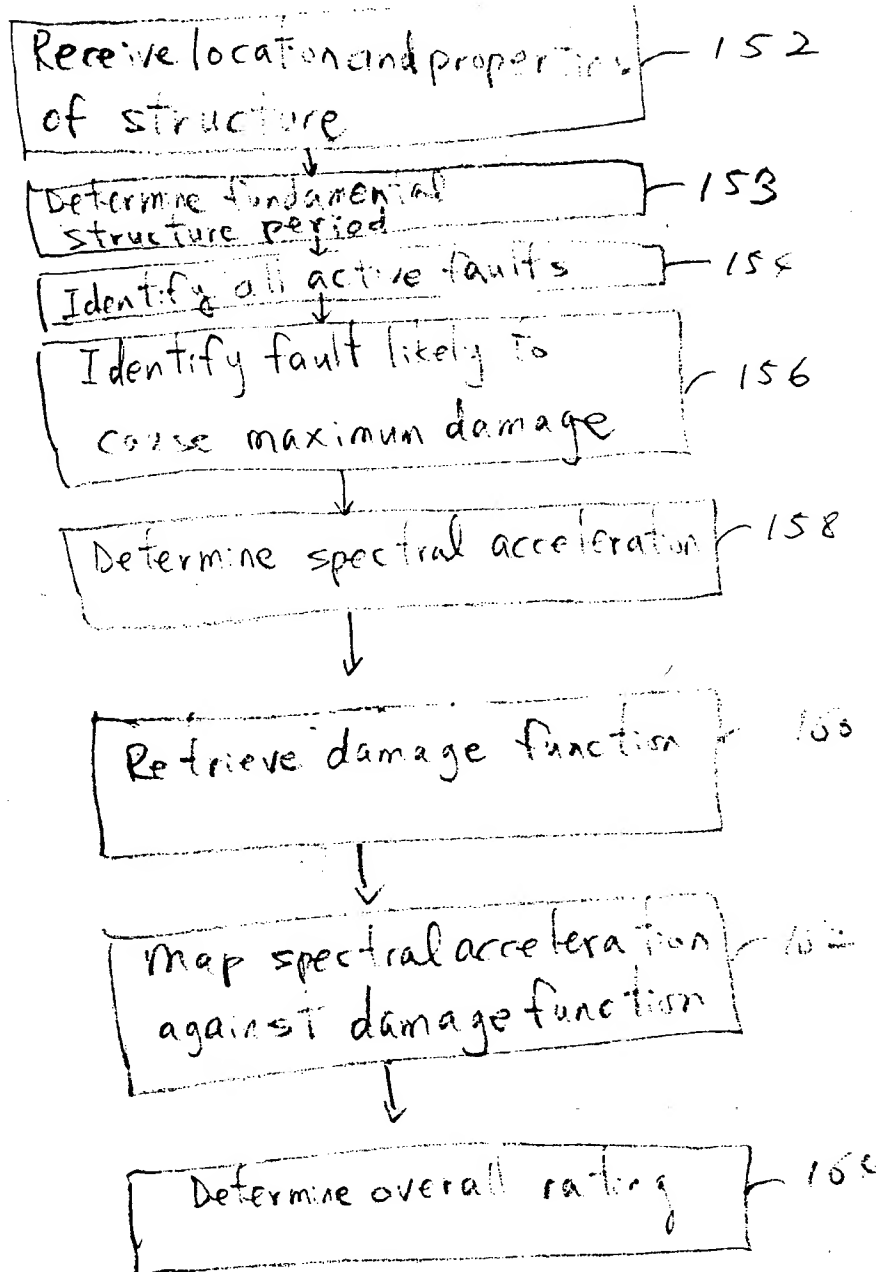 Receive locaton and properties 152
of structure
Determine fundamential 153
structure period
Identify all active faults
Identify fault likely to 156
cause maximun damage
Determine spectral acceleraton 158
Retrieve damage function
Map spectral acceleration
against damage function
Determine overall rating